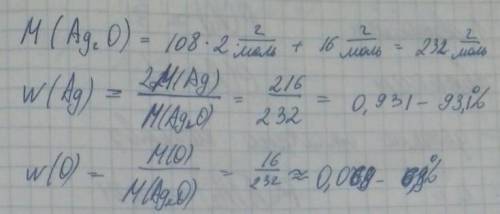 M(Ag₂O) = 108·2 г/моль + 16 г/моль = 232 г/моль
W(Ag) = 2M(Ag)/M(Ag₂O) = 216/232 = 0,931 - 93,1%
W(O) = M(O)/M(Ag₂O) = 16/232 ≈ 0,069 - 6,9%